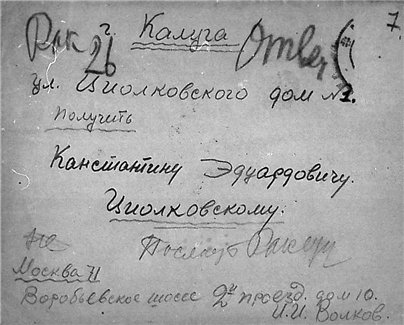 7.
г. Калуга
26
Ответ
ул. Циолковского дом № 1.
получить
Канстантину Эдуардовичу.
Циолковскому.
Москва 71
Воробьевское шоссе 2й проезд. дом 10.
И.И. Волков.